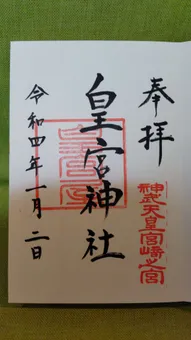 奉拝
神武天皇宮崎之宮
皇宮神社
令和四年一月二日